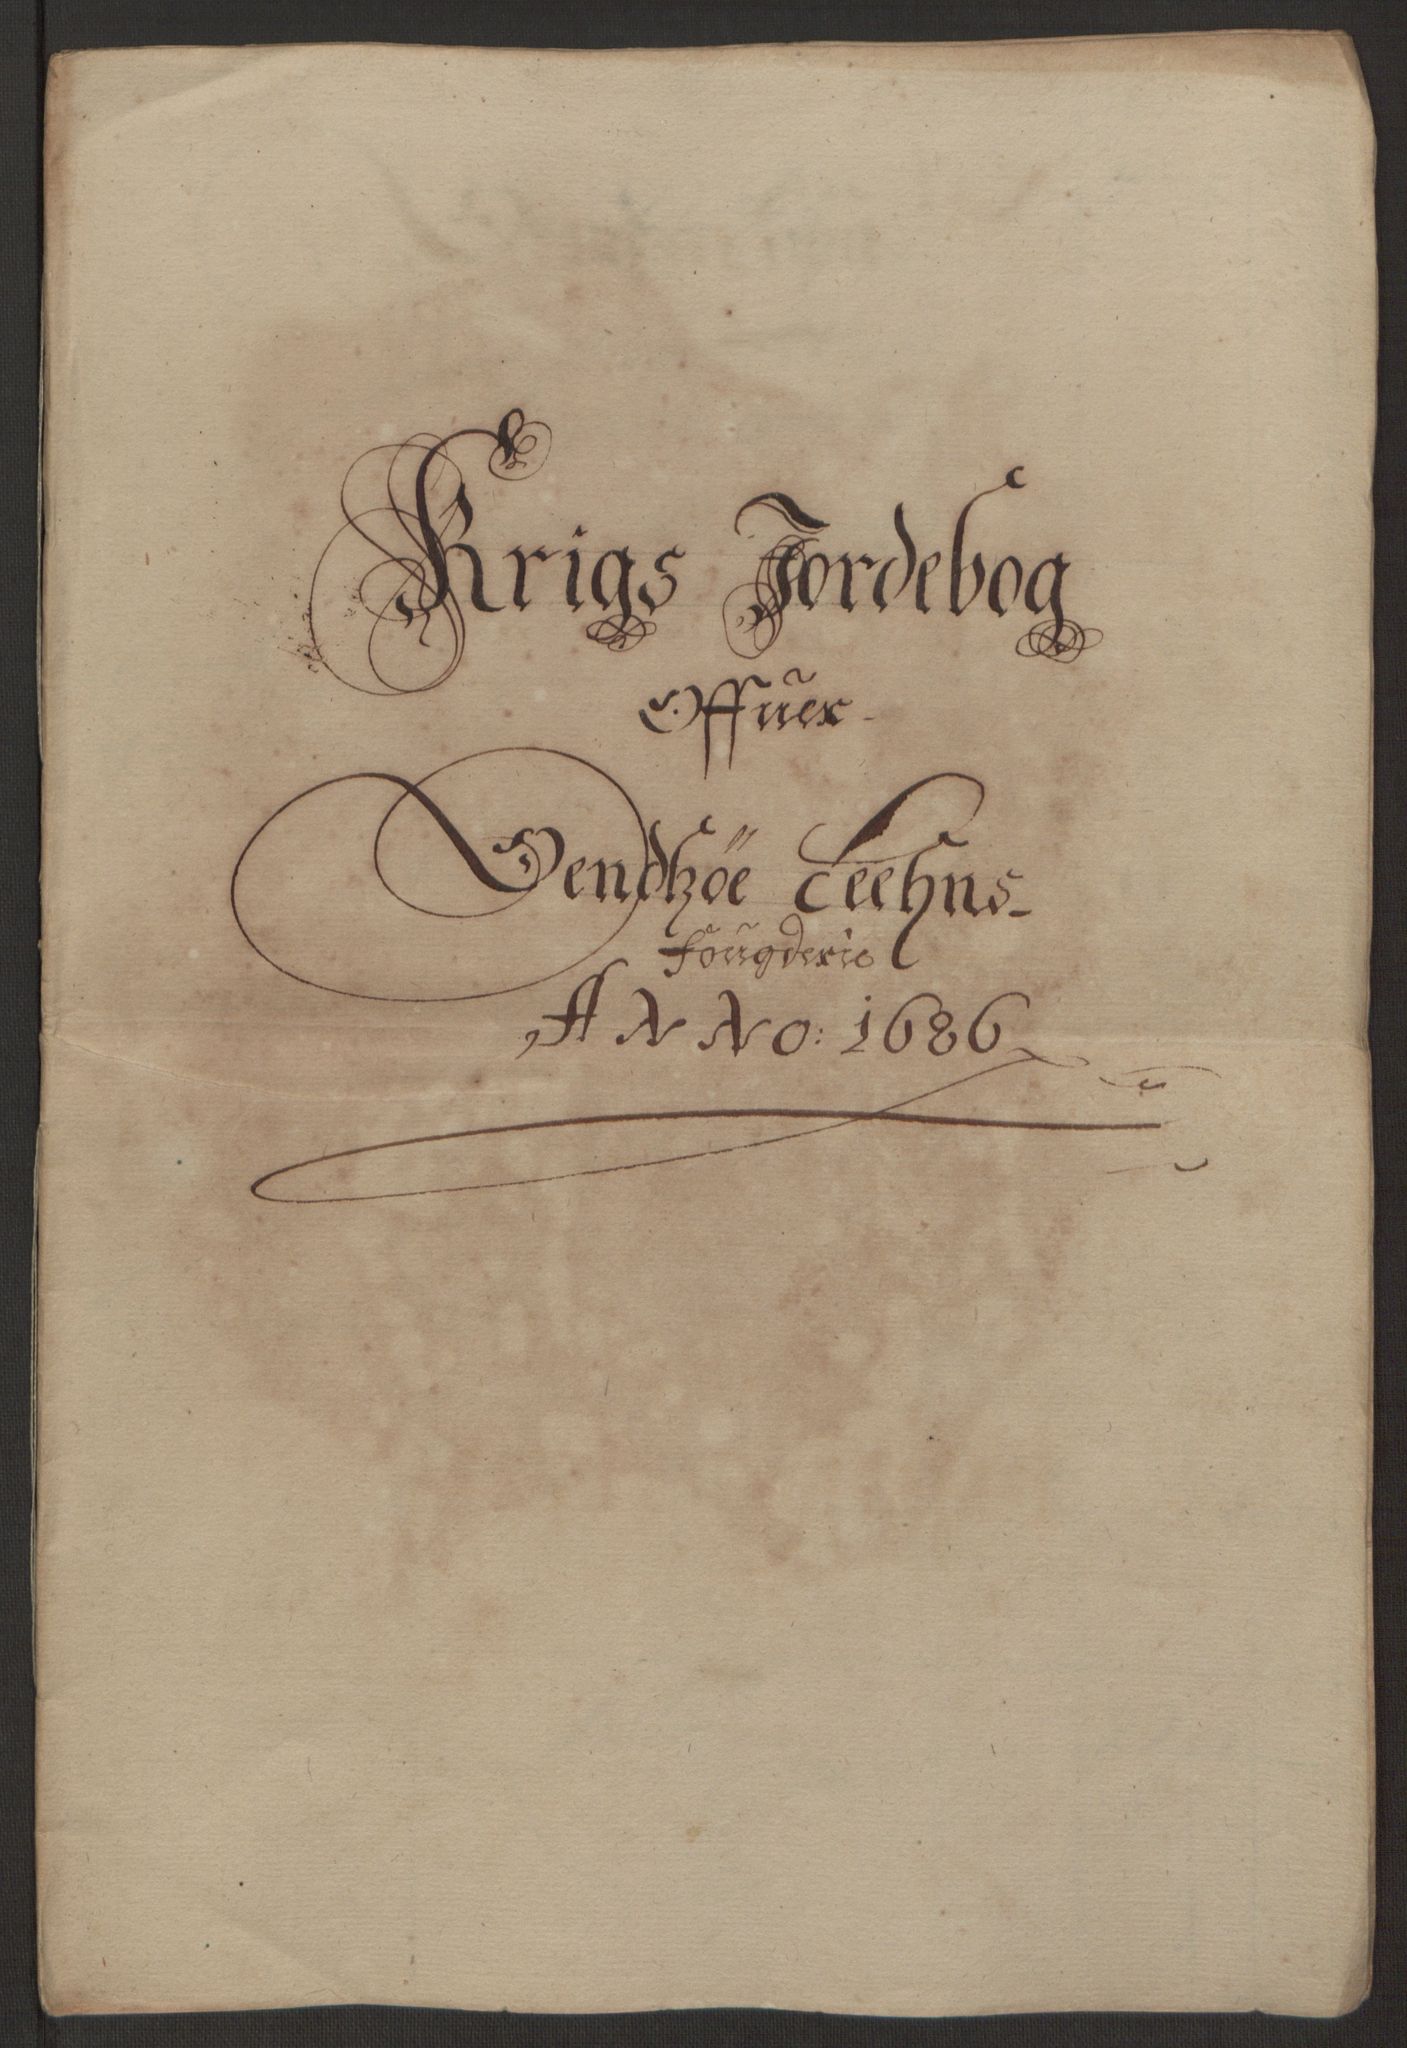 Krigs Jordebog
Offuer
Vendhöe Leehns
fougderie
ANNO: 1686